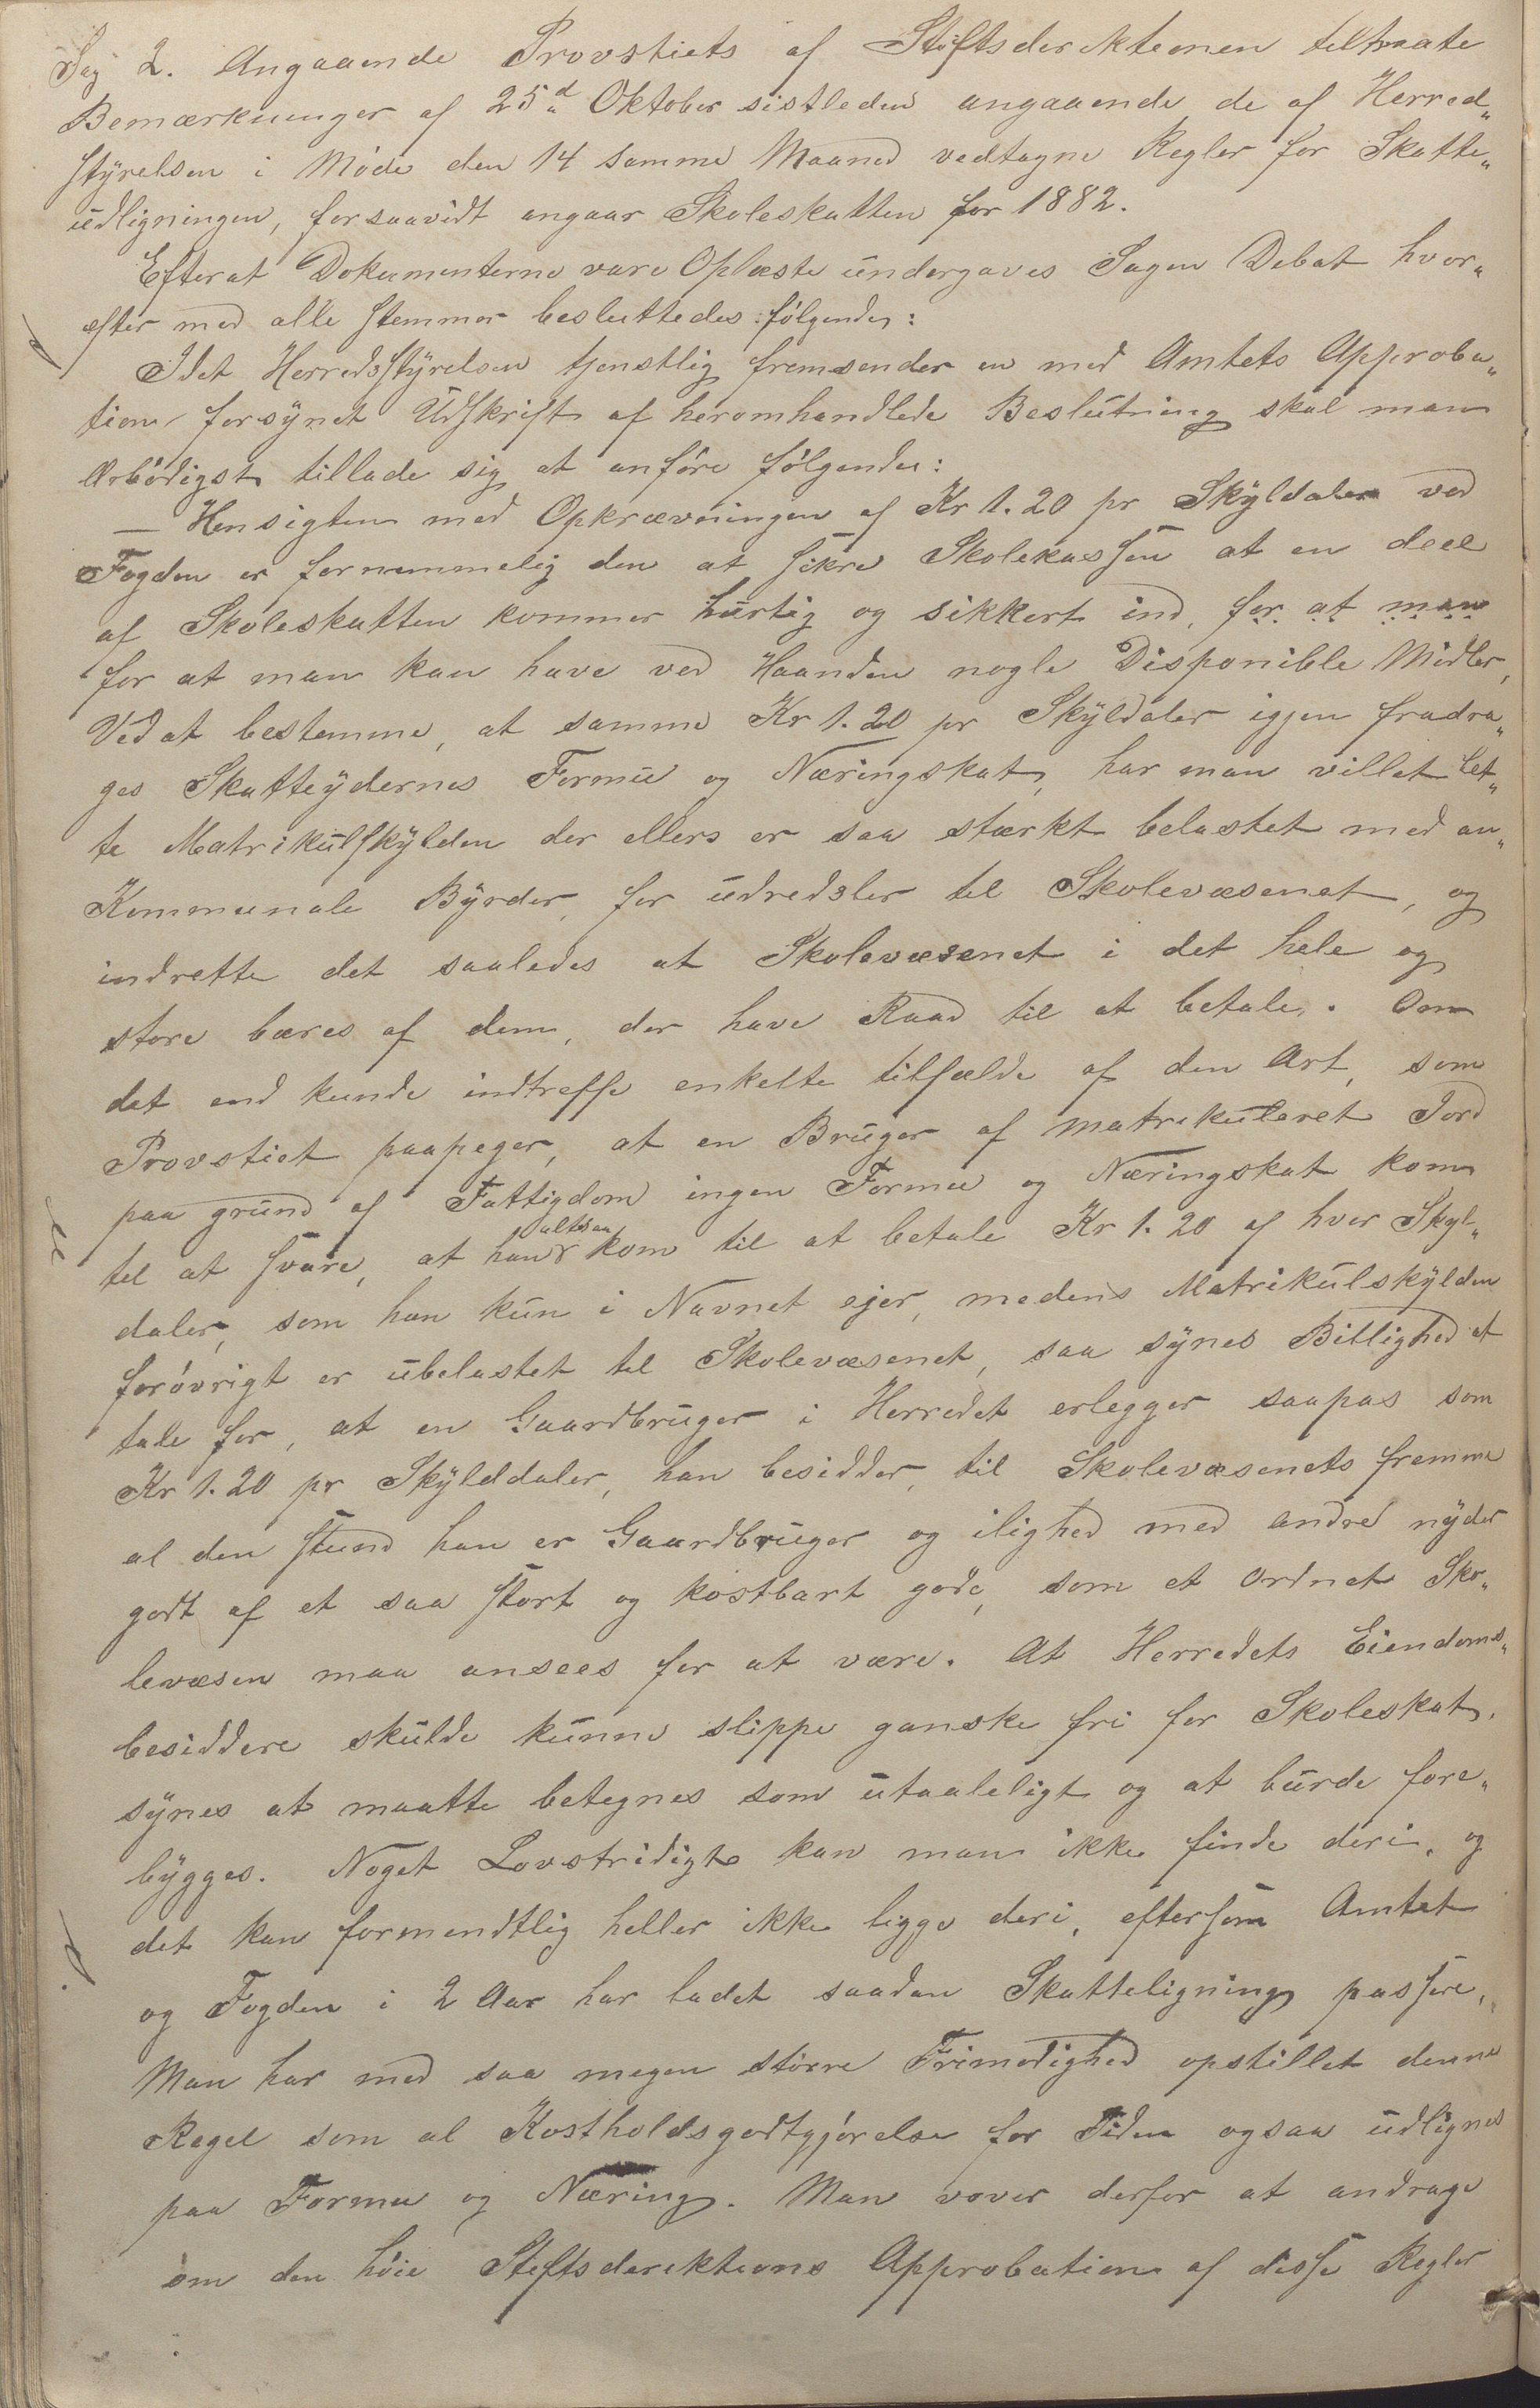 Sag 2. Angaaende Provstiets af Stiftsdirektionen tiltraate
Bemærkninger af 25d Oktober sistleden angaaende de af Herred„
styrelsen i Møde den 14 samme Maaned vedtagne Regler for Skatte„
udligningen, forsaavidt angaar Skoleskatten for 1882.
Efterat Dokumenterne vare Oplæste undergaves Sagen Debat hvor„
efter med alle stemmer besluttedes følgende:
Idet Herredsstyrelsen tjenstlig fremsender en med Amtets Approba„
tion forsynet Udskrift af heromhandlede Beslutning skal man
Ærbødigst tillade sig at anføre følgende:
— Hensigten med Opkrævningen af Kr 1.20 pr Skyldaler ved
Fogden er fornemmelig den at sikre Skolekassen at en deel
af Skoleskatten kommer hurtig og sikkert ind, for at man
for at man kan have ved Haanden nogle Disponible Midler,
Ved at bestemme, at samme Kr 1.20 pr Skyldaler igjen fradra„
ges Skatteydernes Formu og Næringskat, har man villet let„
te Matrikulskylden der ellers er saa stærkt belastet med an„
Kommunale Byrder, for udredsler til Skolevæsenet, og
indrette det saaledes at Skolevæsenet i det hele og
store bæres af dem, der have Raad til at betale. Om
det end kunde indtreffe enkelte tilfælde af den Art, som
Provstiet paapeger, at en Bruger af matrikuleret Jord
paa grund af Fattigdom ingen Formu og Næringskat kom
til at svare, at han altsaa kom til at betale Kr 1.20 af hver Skyl„
daler, som han kun i Navnet ejer, medens Matrikulskylden
forøvrigt er ubelastet til Skolevæsenet, saa synes Billighed at
tale for, at en Gaardbruger i Herredet erlegger saapas som
Kr 1.20 pr Skylddaler, han besidder, til Skolevæsenets fremme
al den stund han er Gaardbruger og ilighed med andre nyder
godt af et saa stort og kostbart gode, som et ordnet Sko„
levæsen maa ansees for at være. At Herredets Eiendoms„
besiddere skulde kunne slippe ganske fri for Skoleskat,
synes at maatte betegnes som utaaleligt og at burde fore„
bygges. Noget Lovstridigt kan man ikke finde deri, og
det kan formendtlig heller ikke ligge deri, eftersom Amtet
og Fogden i 2 Aar har ladet saadan Skatteligning passere,
Man har med saa megen større Frimodighed opstillet denne
Regel som al Kostholdsgodtgjørelse for Tiden ogsaa udlignes
paa Formu og Næring. Man vover derfor at andrage
om den høie Stiftsderektions Approbation af disse Regler